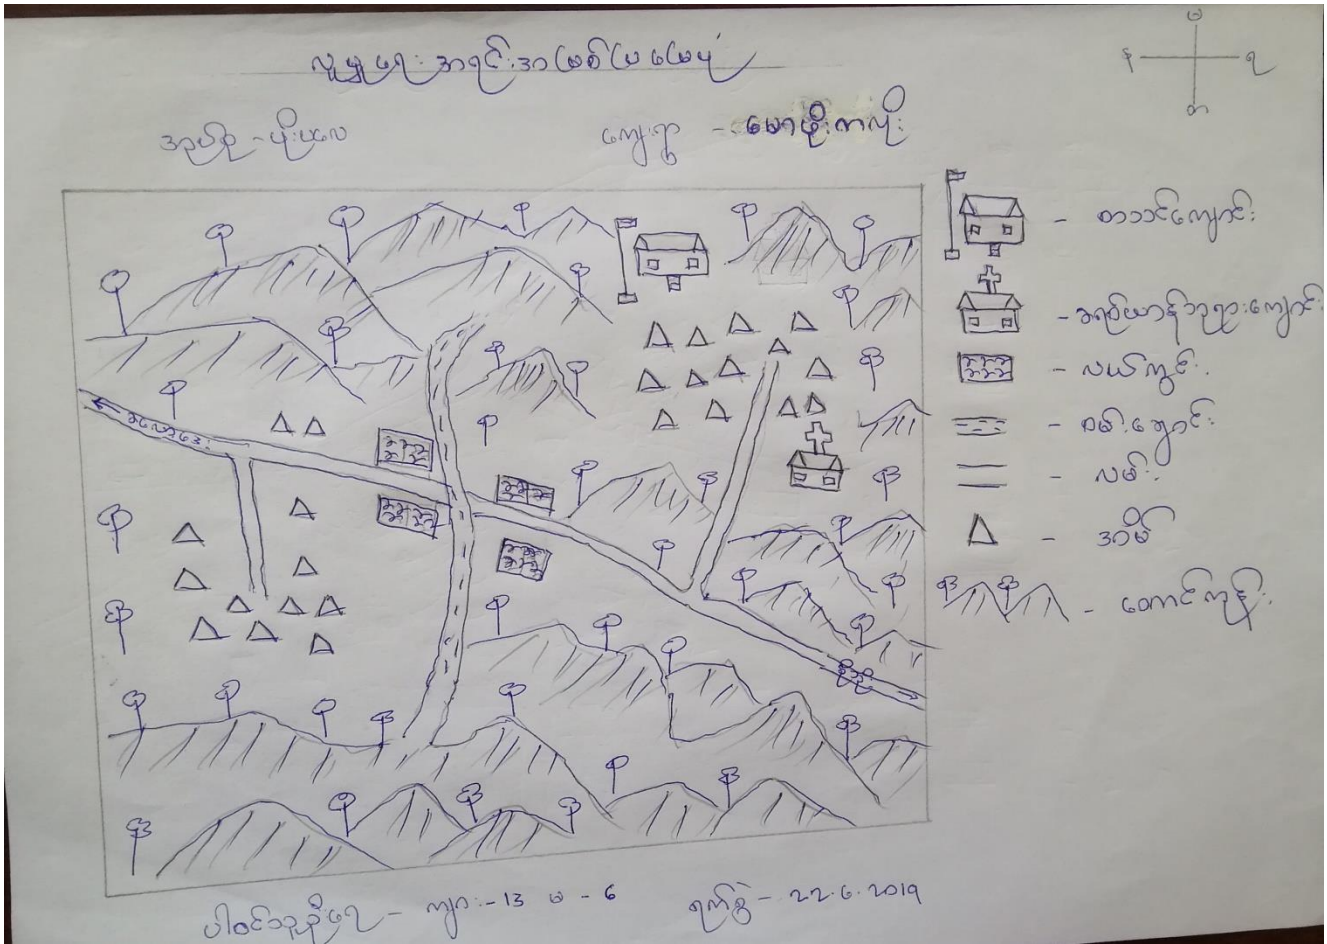 လူမှုရေးအရင်းအမြစ်ပြမြေပုံ
အုပ်စု - ဖိုးပလေ
ကျေးရွာ - မောဖိုးကလိုး
မ
န
ရ
တ
စာသင်ကျောင်း
ခရစ်ယာန်ဘုရားကျောင်း
လယ်ကွင်း
စမ်းချောင်း
လမ်း
အိမ်
တောင်ကုန်း
ပါဝင်သူဦးရေ - ကျား - 13 မ - 6
ရက်စွဲ - 22.6.2019